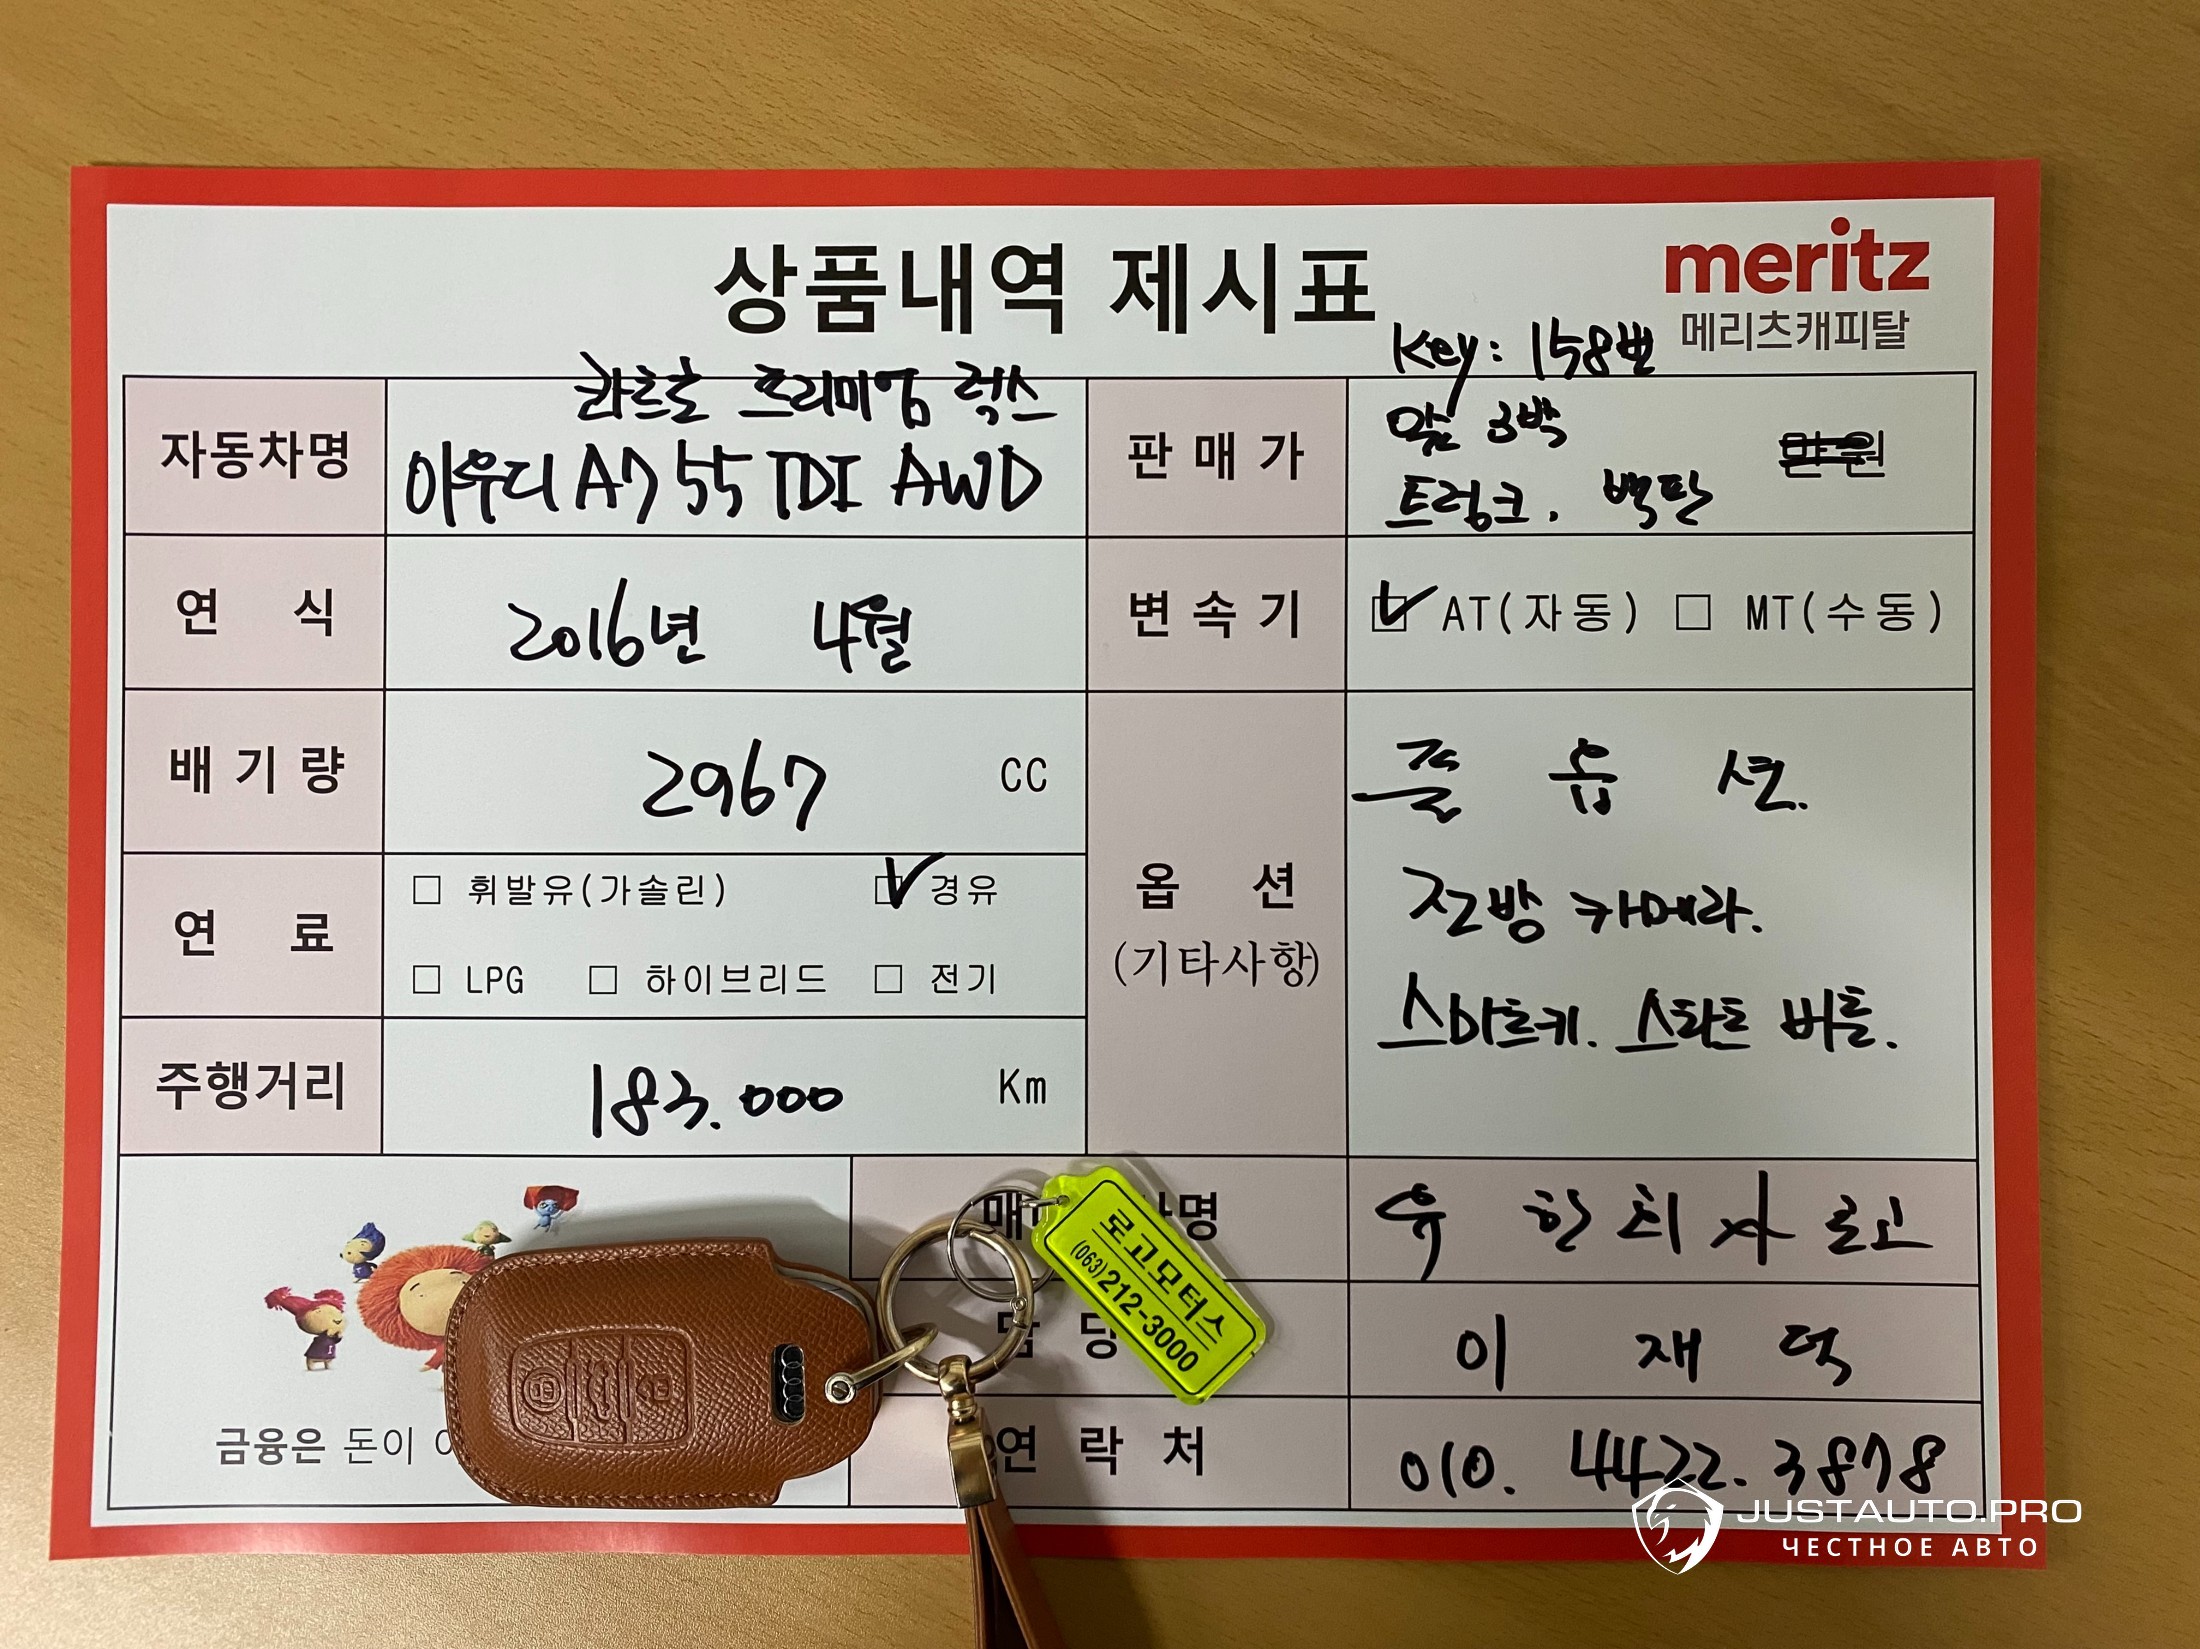 상품내역 제시표
meritz
메리츠캐피탈
Key: 158번
자동차명
콰트로 프리미엄 럭스
아우디 A7 55 TDI AWD
판매가
앞 3박
트렁크. 백판
만원
연 식
2016년 4월
변속기
AT(자동) □ MT(수동)
배기량
2967 CC
옵 션
(기타사항)
풀 옵 션.
전방 카메라.
스마트키. 스타트 버튼.
연 료
□ 휘발유(가솔린) 경유
□ LPG □ 하이브리드 □ 전기
주행거리
183.000 Km
매 명
유한회사 로고
이 재 덕
연락처
010. 4422. 3878
금융은 돈이
로고모터스
(063)212-3000
JUSTAUTO.PRO
ЧЕСТНОЕ АВТО